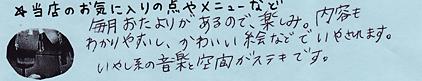 ☆当店のお気に入りの点やメニューなど
毎月おたよりがあるので楽しみ。内容も
わかりやすいし、かわいい絵などでいやされます。
いやし系の音楽と空間がステキです。